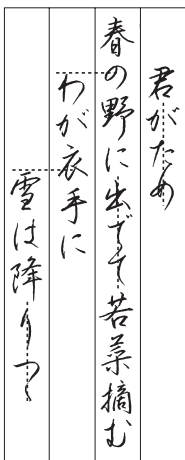 君がため
春の野に出でて若菜摘む
わが衣手に
雪は降りつつ